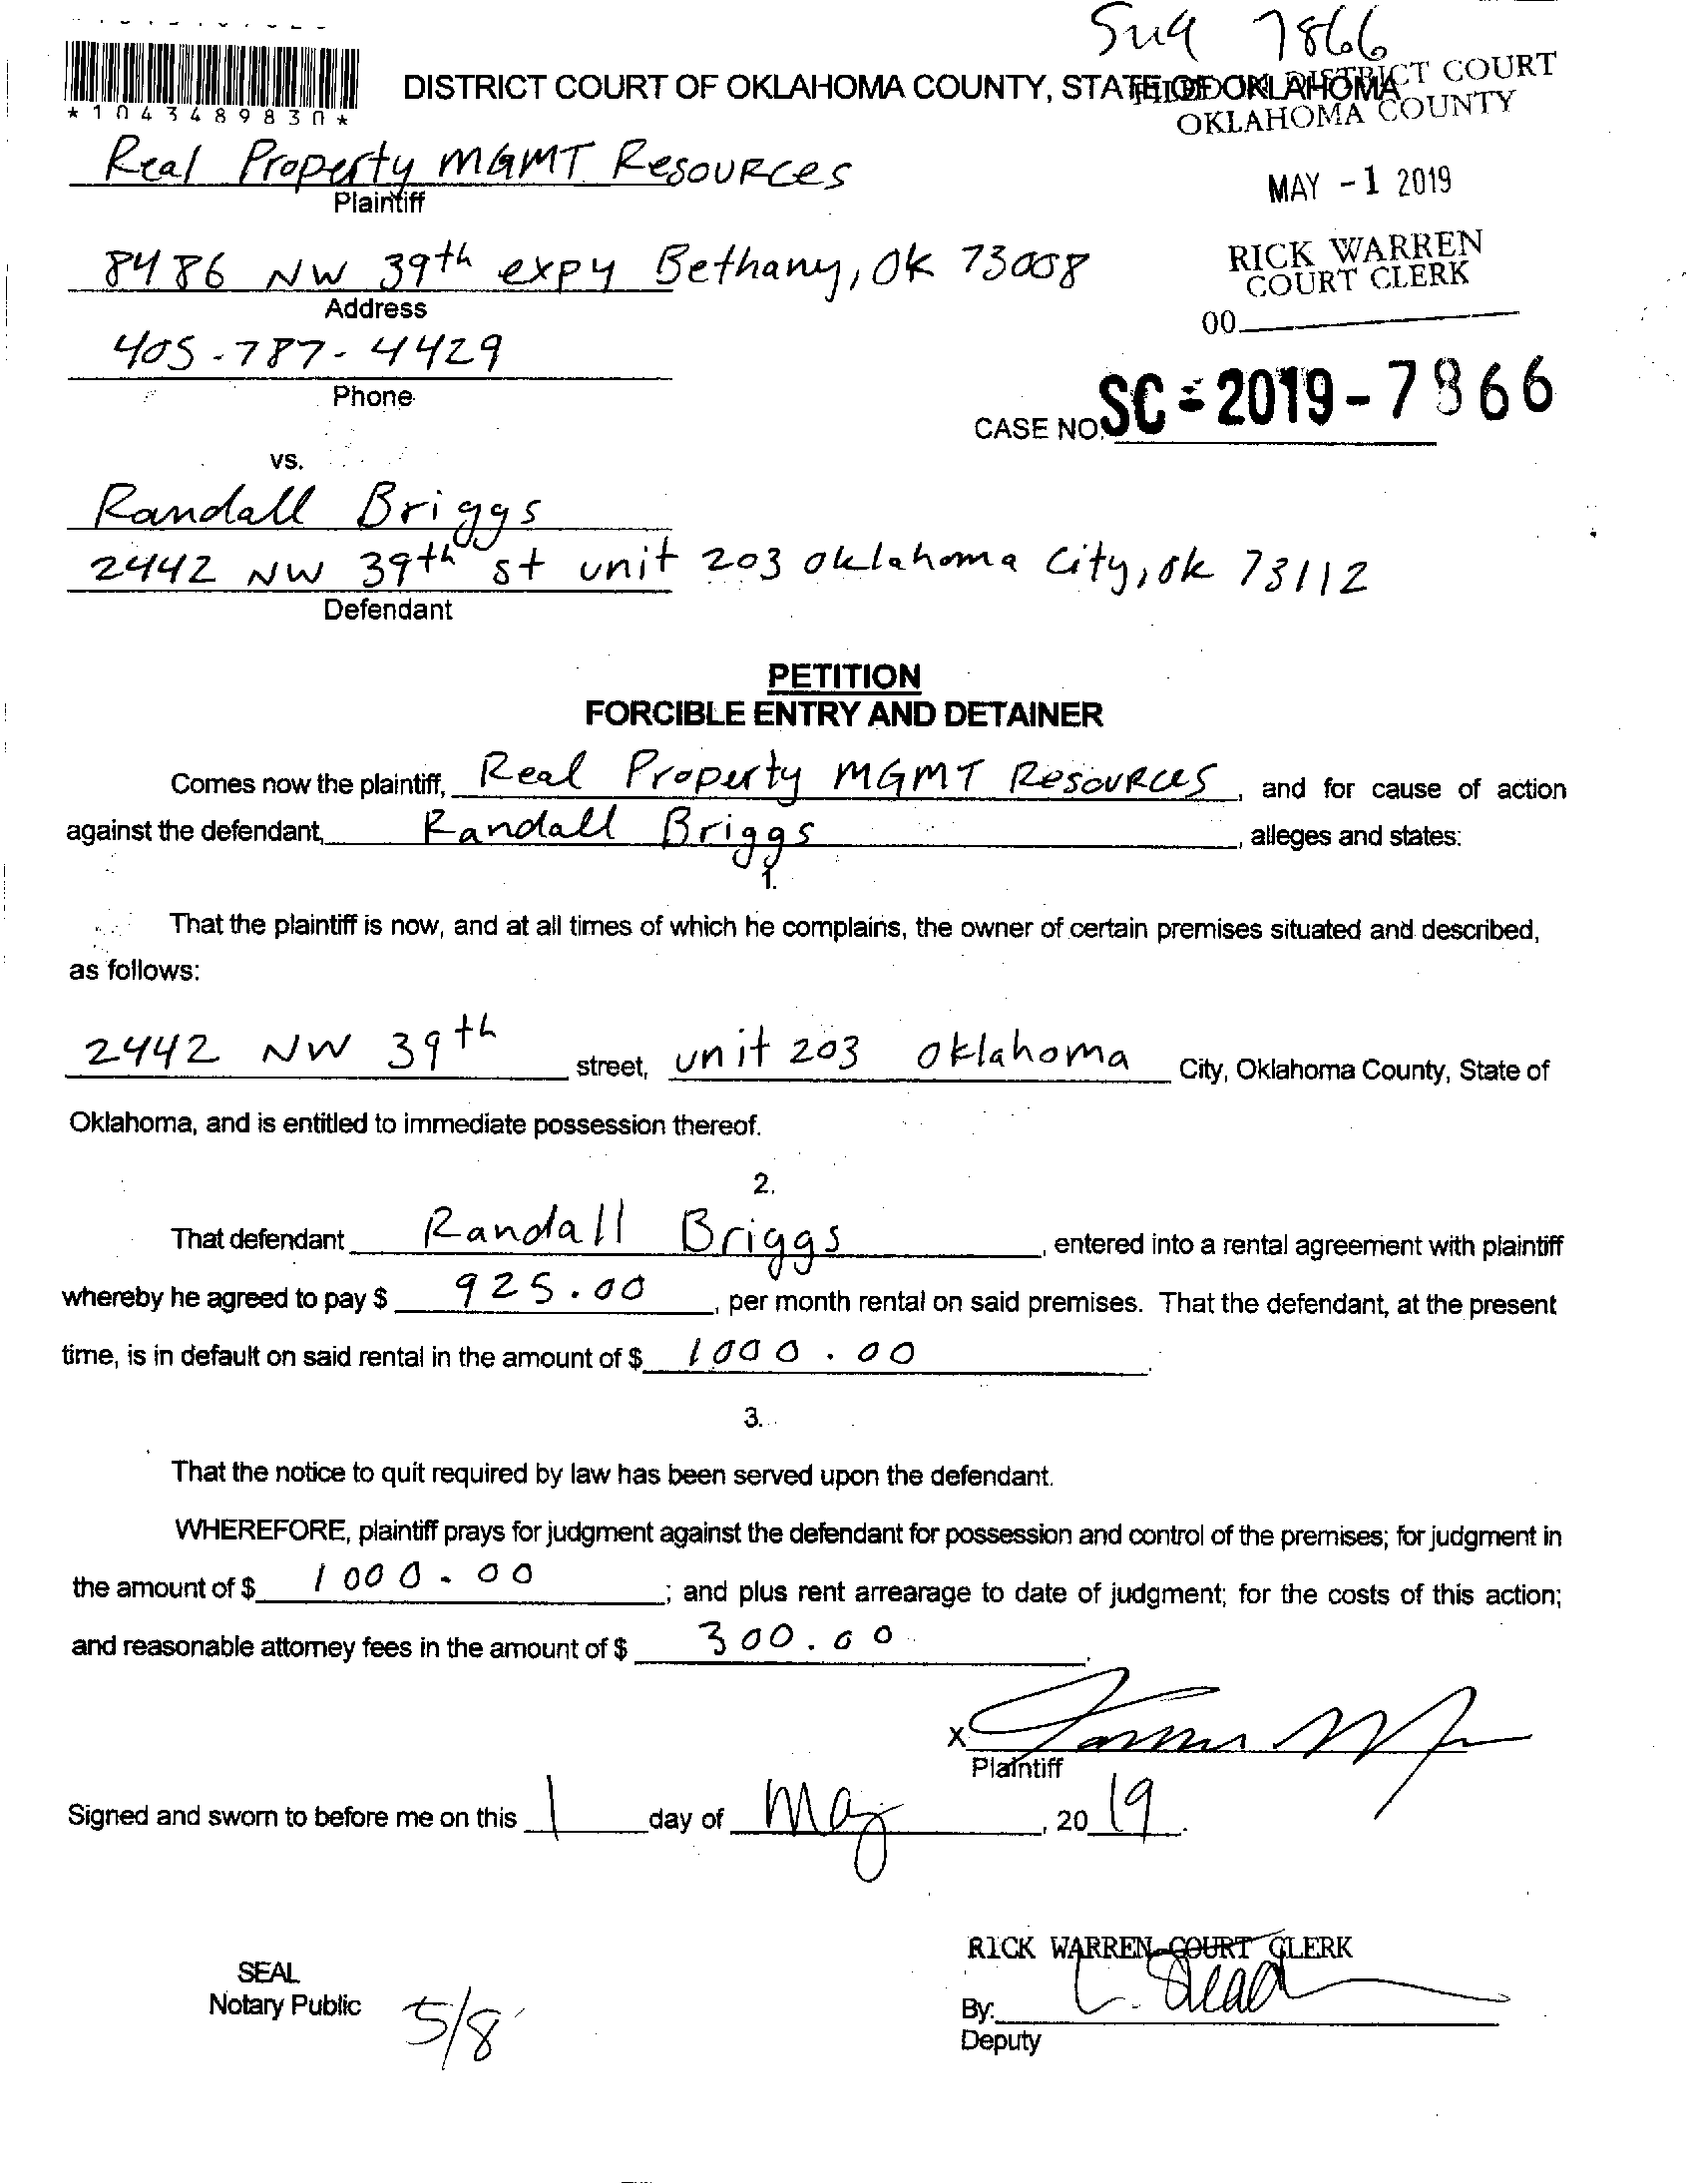 Sug 7866
DISTRICT COURT OF OKLAHOMA COUNTY, STATE OF OKLAHOMA
FILED IN DISTRICT COURT
OKLAHOMA COUNTY
*1043489830*
Real Property MGMT Resources
Plaintiff
MAY -1 2019
8486 NW 39th expy Bethany, OK 73008
Address
RICK WARREN
COURT CLERK
00
405-787-4429
Phone
CASE NO. SC-2019-7866
vs.
Randall Briggs
2442 NW 39th st unit 203 oklahoma City, ok 73112
Defendant
PETITION
FORCIBLE ENTRY AND DETAINER
Comes now the plaintiff, Real Property MGMT Resources, and for cause of action
against the defendant, Randall Briggs, alleges and states:
1.
That the plaintiff is now, and at all times of which he complains, the owner of certain premises situated and described,
as follows:
2442 NW 39th street, unit 203 oklahoma City, Oklahoma County, State of
Oklahoma, and is entitled to immediate possession thereof.
2.
That defendant Randall Briggs, entered into a rental agreement with plaintiff
whereby he agreed to pay $ 925.00, per month rental on said premises. That the defendant, at the present
time, is in default on said rental in the amount of $ 1000.00.
3.
That the notice to quit required by law has been served upon the defendant.
WHEREFORE, plaintiff prays for judgment against the defendant for possession and control of the premises; for judgment in
the amount of $ 1000.00; and plus rent arrearage to date of judgment; for the costs of this action;
and reasonable attorney fees in the amount of $ 300.00.
X
Plaintiff
Signed and sworn to before me on this 1 day of May, 2019.
RICK WARREN COURT CLERK
SEAL
Notary Public 5/8
By:
Deputy